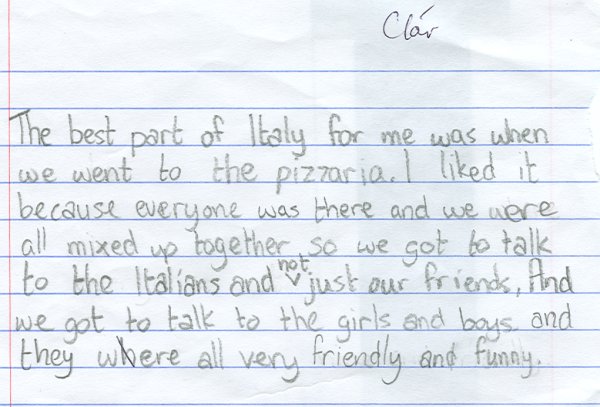 Clár
The best part of Italy for me was when
we went to the pizzaria. I liked it
because everyone was there and we were
all mixed up together so we got to talk
to the Italians and not just our friends, And
we got to talk to the girls and boys and
they where all very friendly and funny.